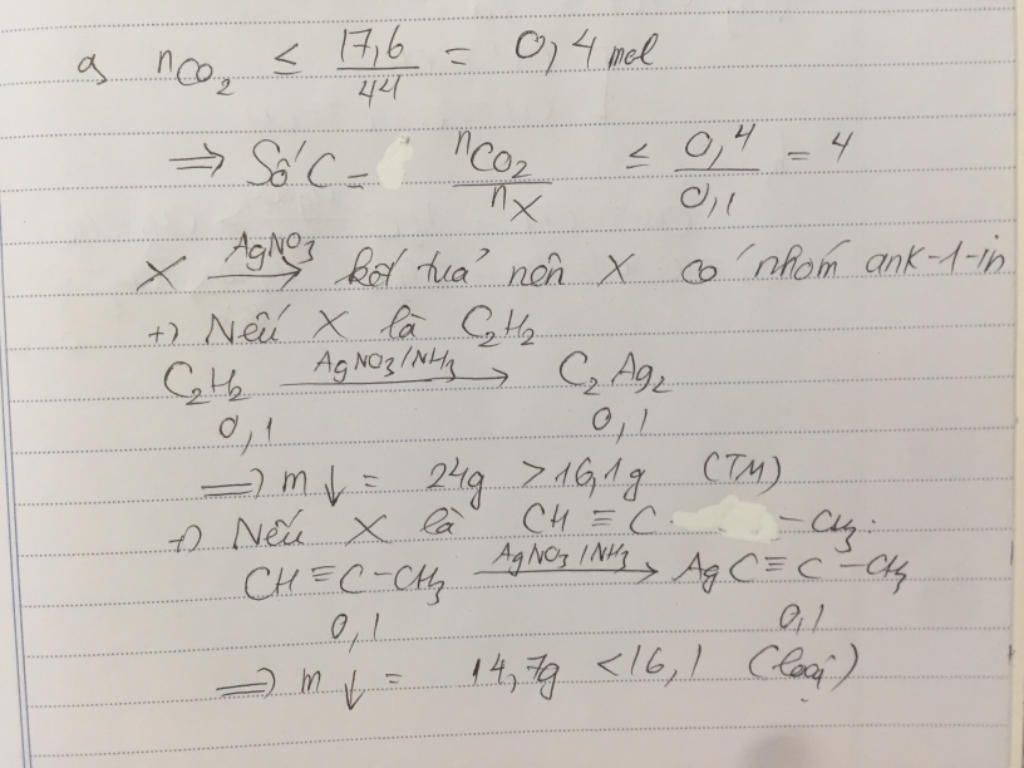 a, nCO₂ ≤ 17,6/44 = 0,4 mol
⇒ Số C = nCO₂/nX ≤ 0,4/0,1 = 4
X AgNO₃→ kết tủa nên X có nhóm ank-1-in
+) Nếu X là C₂H₂
C₂H₂ AgNO₃/NH₃→ C₂Ag₂
0,1 0,1
⇒ m↓ = 24g > 16,1g (TM)
+) Nếu X là CH≡C -CH₃.
CH≡C-CH₃ AgNO₃/NH₃→ AgC≡C-CH₃
0,1 0,1
⇒ m↓ = 14,7g < 16,1 (loại)